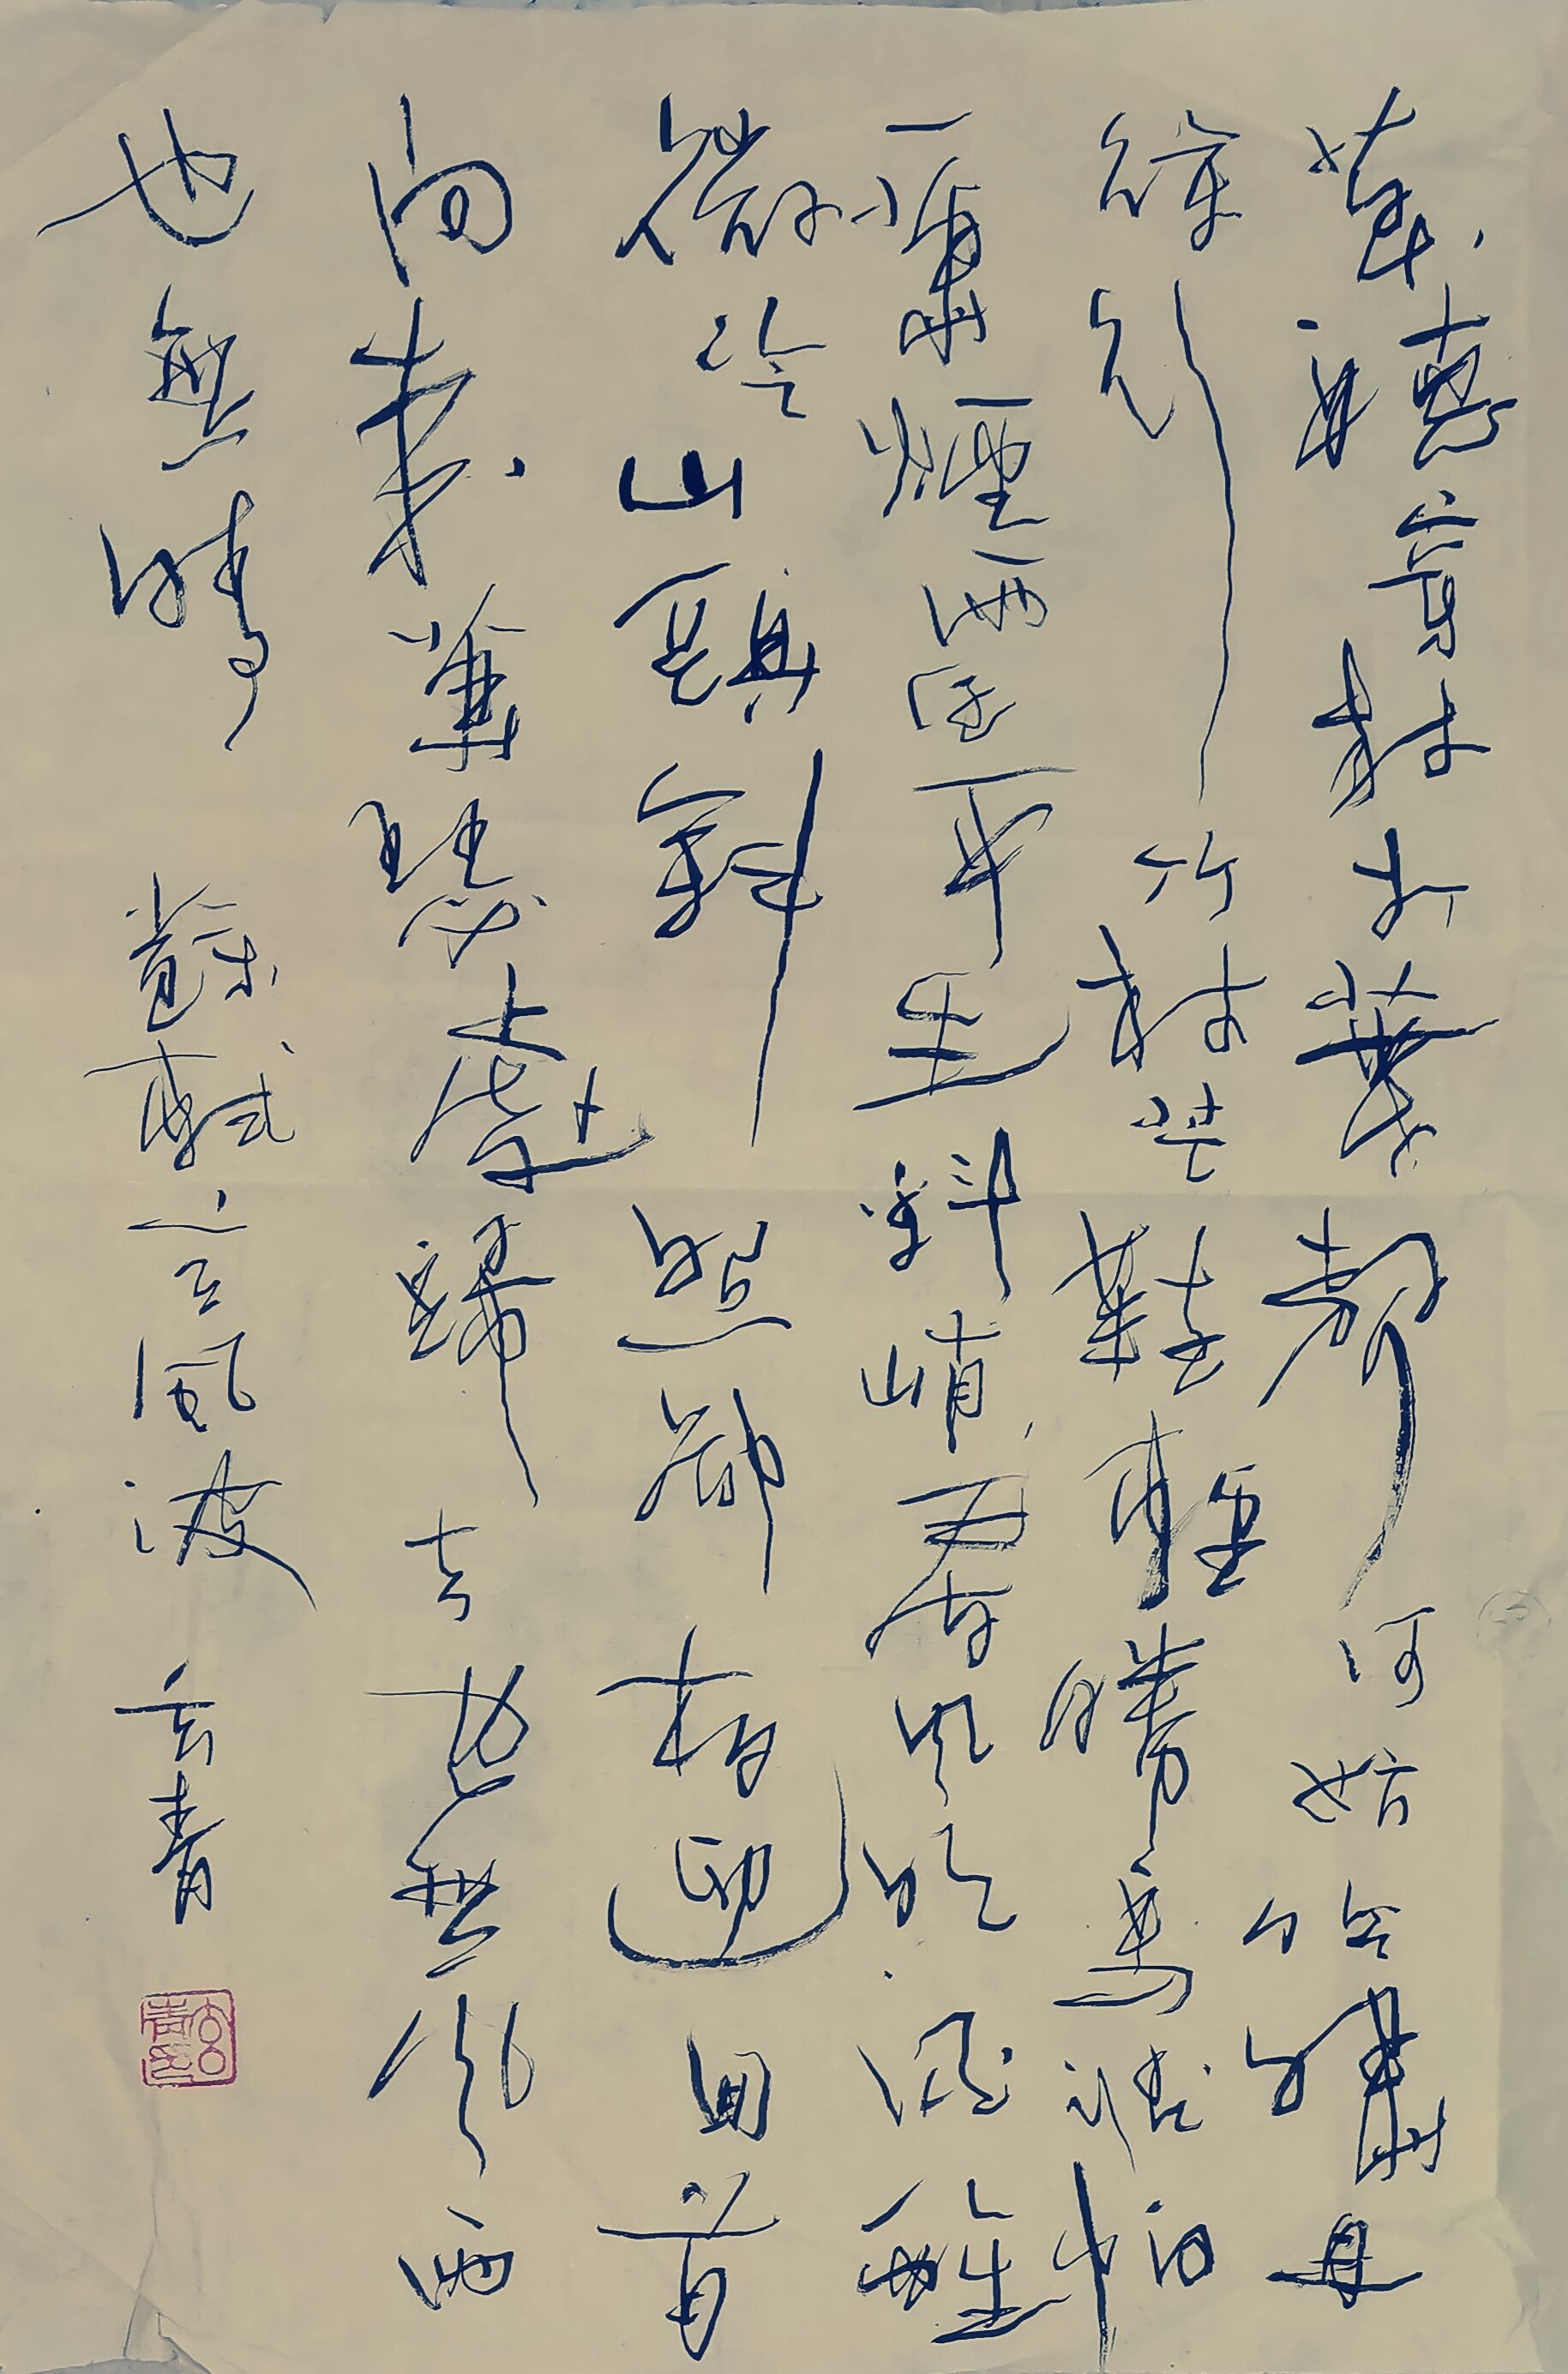 莫聽穿林打葉聲何妨吟嘯且
徐行竹杖芒鞋輕勝馬誰怕
一蓑煙雨任平生料峭春風吹酒醒
微冷山頭斜照卻相迎回首
向來蕭瑟處歸去也無風雨
也無晴 蘇軾定風波 玄青
玄青印